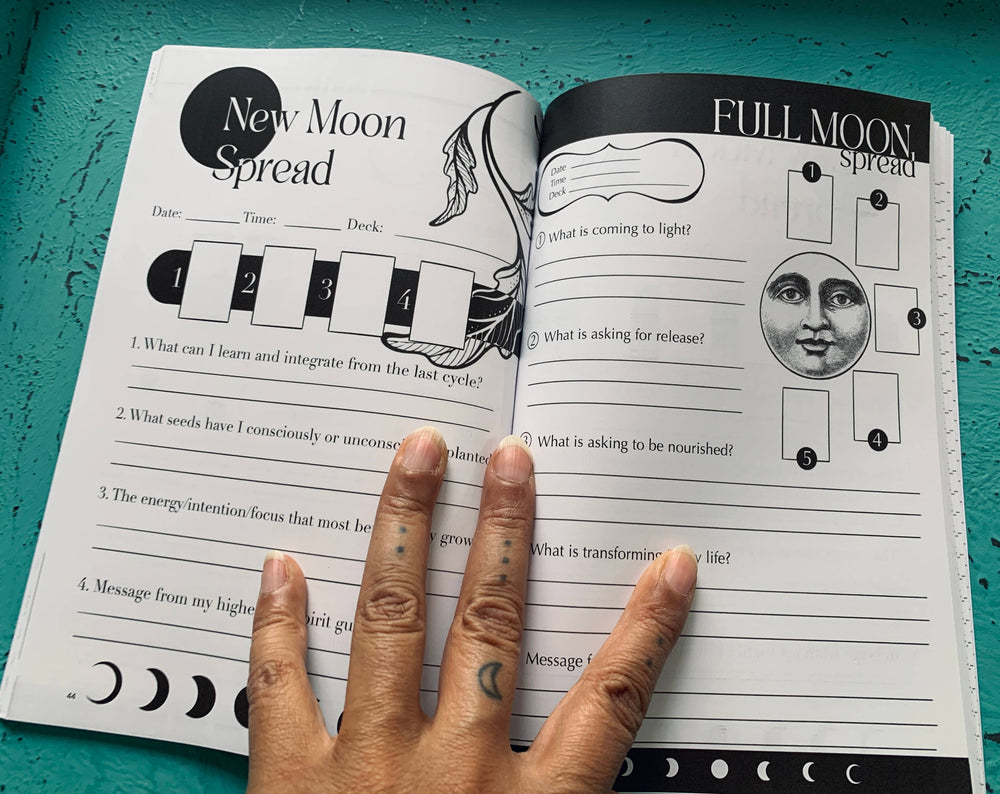 New Moon
Spread
Date: Time: Deck:
1 2 3 4
1. What can I learn and integrate from the last cycle?
2. What seeds have I consciously or planted
3. The energy/intention/focus that most
4. Message from my
44
FULL MOON
spread
Date
Time
Deck
1
2
3
4
5
① What is coming to light?
② What is asking for release?
③ What is asking to be nourished?
What is transforming life?
Message